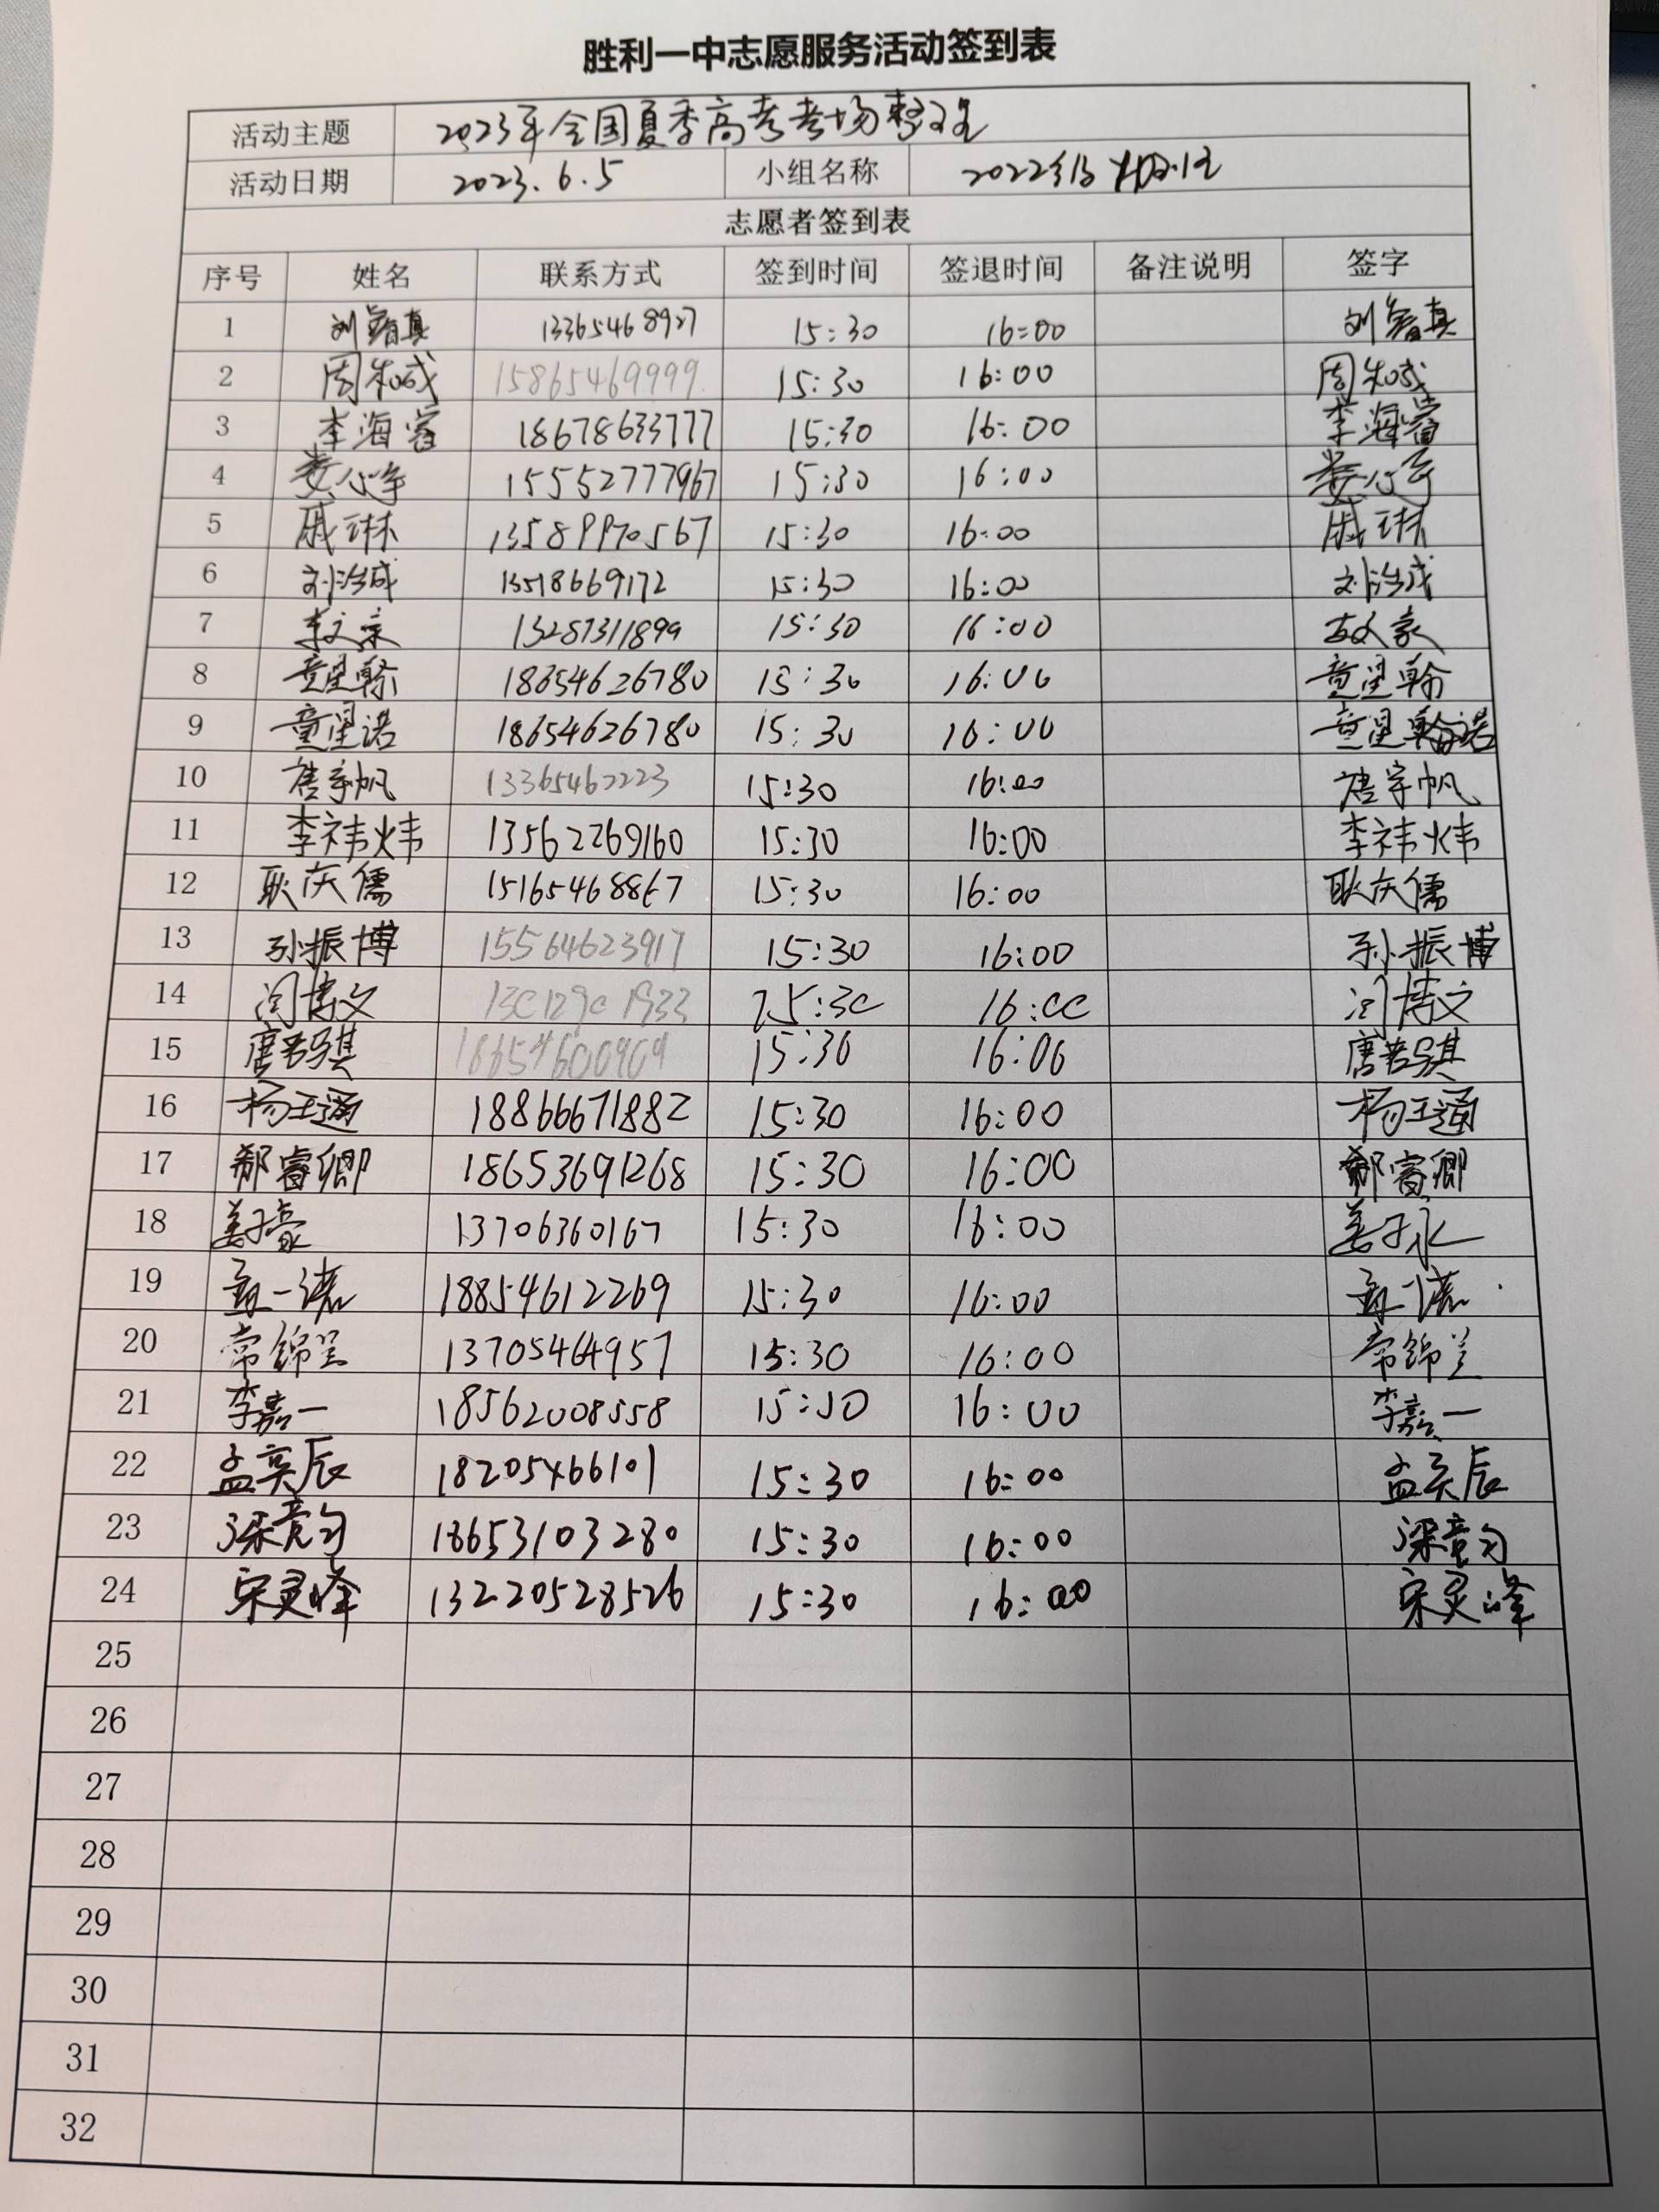 胜利一中志愿服务活动签到表
活动主题 2023年全国夏季高考考场整理
活动日期 2023.6.5 小组名称 2022级
志愿者签到表
序号 姓名 联系方式 签到时间 签退时间 备注说明 签字
1 刘睿真 13365468927 15:30 16:00 刘睿真
2 周 15865469999 15:30 16:00 周
3 李海睿 18678633777 15:30 16:00 李海睿
4 娄心宇 15552777967 15:30 16:00 娄心宇
5 戚琳 13589970567 15:30 16:00 戚琳
6 刘治成 13518669172 15:30 16:00 刘治成
7 15287311899 15:30 16:00
8 童星翰 18654626780 15:30 16:00 童星翰
9 童星诺 18654626780 15:30 16:00 童星诺
10 唐宇帆 13365467223 15:30 16:00 唐宇帆
11 李祎炜 13562269160 15:30 16:00 李祎炜
12 耿庆儒 15165468867 15:30 16:00 耿庆儒
13 孙振博 15564623917 15:30 16:00 孙振博
14 闫博文 15:30 16:00 闫博文
15 唐若琪 18654600909 15:30 16:00 唐若琪
16 杨玉通 18866671882 15:30 16:00 杨玉通
17 郗睿卿 18653691268 15:30 16:00 郗睿卿
18 姜子豪 13706360167 15:30 16:00 姜子
19 一诺 18854612269 15:30 16:00 一诺
20 常锦兰 13705464957 15:30 16:00 常锦兰
21 李嘉一 18562008558 15:30 16:00 李嘉一
22 孟奕辰 18205466101 15:30 16:00 孟奕辰
23 梁竞匀 18653103280 15:30 16:00 梁竞匀
24 宋灵峰 13220528526 15:30 16:00 宋灵峰
25
26
27
28
29
30
31
32